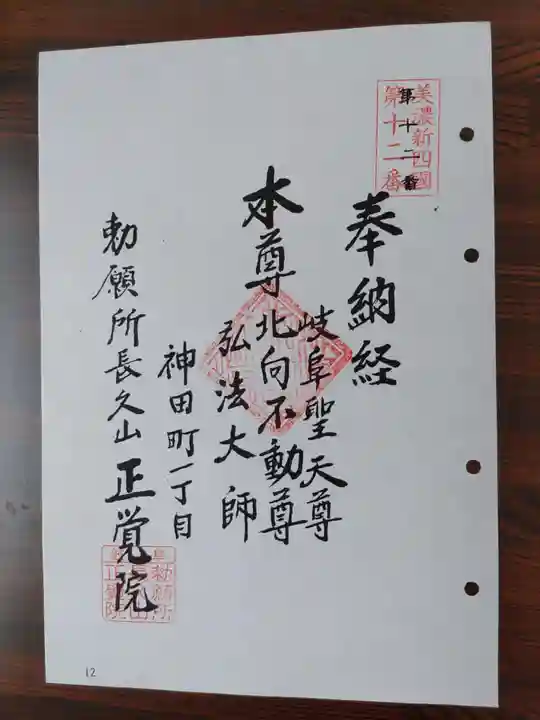 美濃新四國
第十二番
第十二番
奉納経
岐阜聖天尊
本尊北向不動尊
弘法大師
神田町一丁目
勅願所長久山正覚院
12